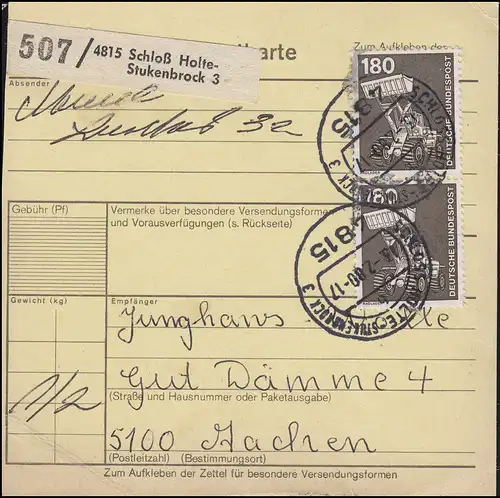 507/ 4815 Schloß Holte-
Stukenbrock 3
karte
Zum Aufkleben der
Absender
32
180
DEUTSCHE BUNDESPOST
180
DEUTSCHE BUNDESPOST
4815
4815
STUKENBROCK 3
Gebühr (Pf)
Vermerke über besondere Versendungsformen
und Vorausverfügungen (s. Rückseite)
Gewicht (kg)
Empfänger
Junghans
1/2
Gut Dämme 4
(Straße und Hausnummer oder Paketausgabe)
5100 Aachen
(Postleitzahl) (Bestimmungsort)
Zum Aufkleben der Zettel für besondere Versendungsformen